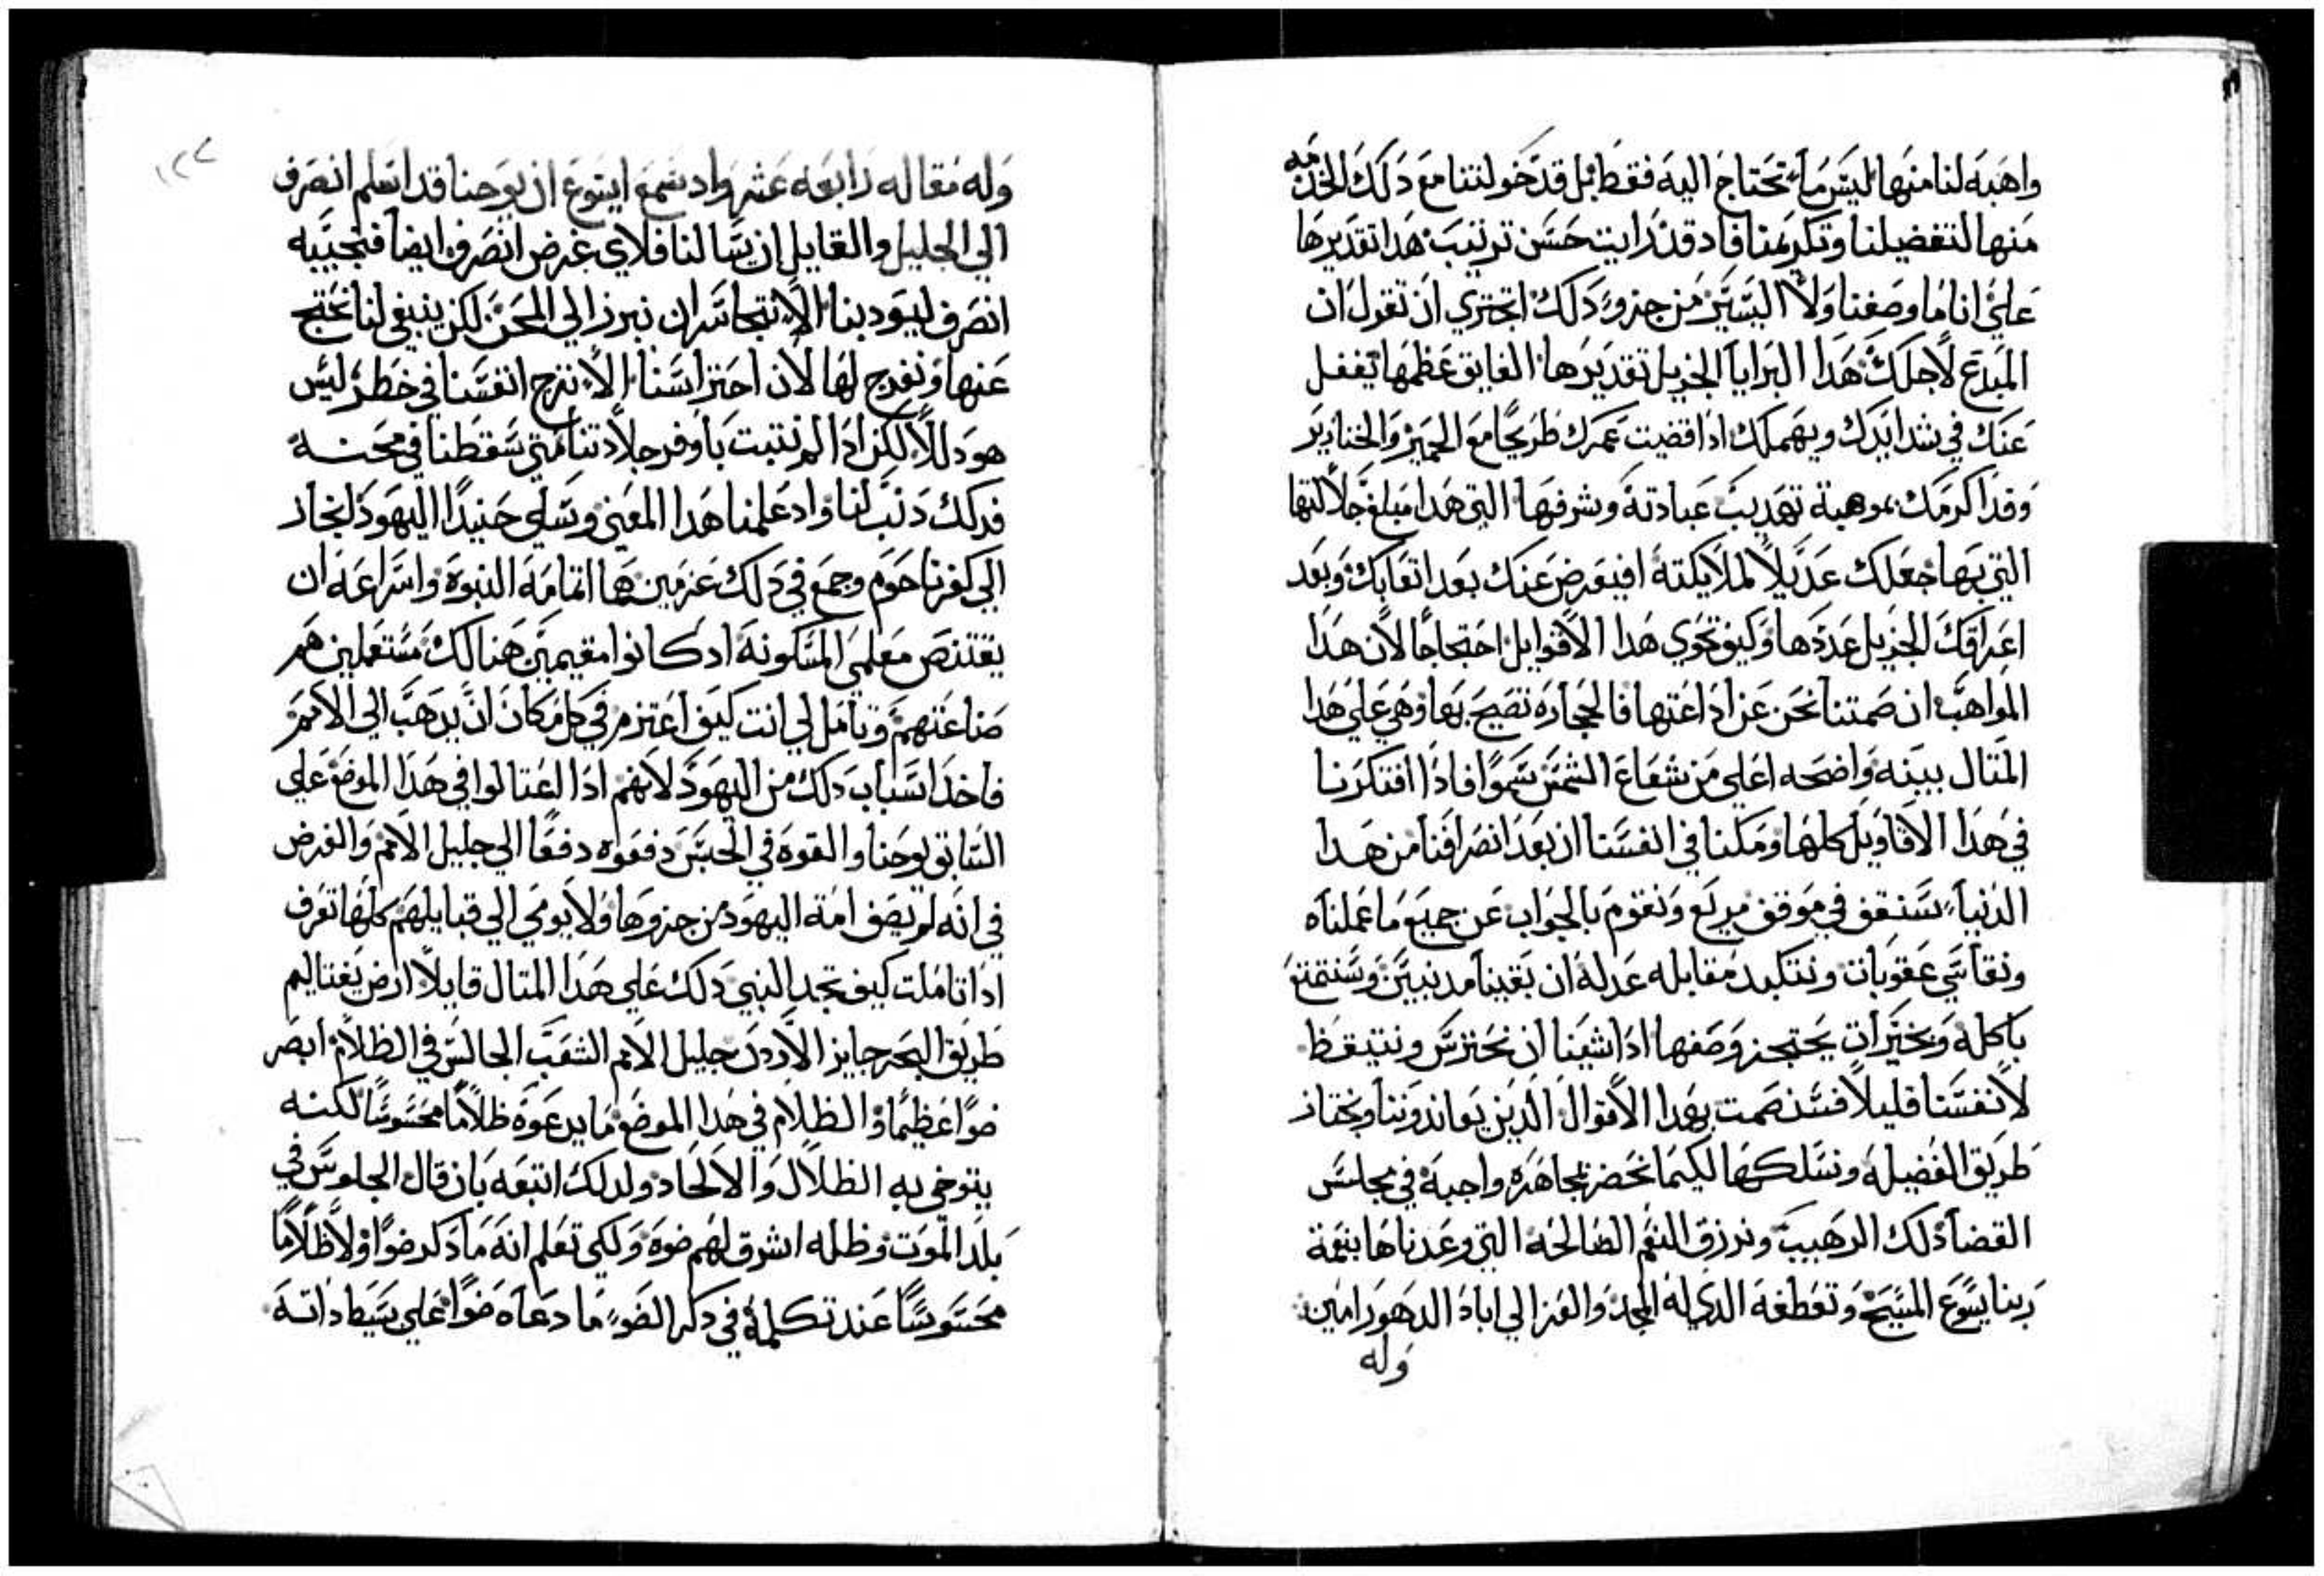 واهبه لنا منها ليس ما نحتاج اليه فقط بل قد خولتنا مع ذلك الخدمه
منها لتفضيلنا وتكريمنا فاد قد رايت حسن ترتيب هدا تقديرها
علي انا ما وصفنا ولا اليسير من جزو دلك اتجتري ان تقول ان
المبدع لاجلك هدا البرايا الجزيل تقديرها الفايق عظمها يغفل
عنك في شدايدك ويهملك ادا قضيت عمرك طريحا مع الحمير والخنازير
وقد اكرمك بموهبة تهديب عبادته وشرفها التي هدا مبلغ جلالتها
التي بها جعلك عديلا لملايكته افيعرض عنك بعد اتعابك وبعد
اعراقك الجزيل عددها وكيف تحوي هدا الاقوايل احتجاجا لان هدا
المواهب ان صمتنا نحن عن اداعتها فالحجاره تصيح بها وهي علي هدا
المتال بينه واضحه اعلي من شعاع الشمس سموا فادا افتكرنا
في هدا الاقاويل كلها ومكنا في انفسنا ان بعد انصرافنا من هدا
الدنيا سنقف في موقف مريع ونقوم بالجواب عن جميع ما عملناه
ونقاسي عقوبات ونتكبد مقابله عدله ان بقينا مدنبين وسنتمتع
باكله وبخيرات يحتجز وصفها ادا شينا ان نحترس ونتيقظ
لانفسنا قليلا فسنصمت بهدا الاقوال الدين يعاندوننا ونختار
طريق الفضيله ونسلكها لكيما نحضر بمجاهره واجبة في مجلس
القضا دلك الرهيب ونرزق النعم الصالحه التي وعدناها بنعمة
ربنا يسوع المسيح وتعطفه الدي له المجد والعز الي اباد الدهور امين
وله
١٢٧
وله مقاله رابعه عشر واد سمع ايسوع ان يوحنا قد اسلم انصرف
الي الجليل والقايل ان يسالنا فلاي غرض انصرف ايضا فنجيبه
انصرف ليودبنا الا نتجاسر ان نبرز الي المحن لكن ينبغي لنا نحتج
عنها ونفرج لها لان احتراسنا الا نزج انفسنا في خطر ليس
هو دلا لكن ادا لم نتبت باوفر جلادتنا متي سقطنا في محنه
فدلك دنب لنا واد علمنا هدا المعني وسلي حنيدا اليهود انحاز
الي كفرناحوم وجمع في دلك عزمين هما اتمامه النبوه واسراعه ان
يقتنص معلمي المسكونه اد كانوا مقيمين هنالك مستعملين هم
صناعتهم وتامل لي انت كيف اعتزم في كل مكان ان يدهب الي الامم
فاخد اسباب دلك من اليهود لانهم ادا اغتالوا في هدا الموضع علي
السابق يوحنا والقوه في الحبس دفعوه دفعا الي جليل الامم والغرض
في انه لم يصف امة اليهود من جزوها ولا يومي الي قبايلهم كلها تعرف
ادا تاملت كيف تجد النبي دلك علي هدا المتال قايلا ارض يفتاليم
طريق البحر جايز الاردن جليل الامم الشعب الجالس في الظلام ابصر
ضوا عظيما والظلام في هدا الموضع ما يدعوه ظلاما محسوسا لكنه
يتوخي به الظلال والالحاد ولدلك اتبعه بان قال الجلوس في
بلد الموت وظله اشرق لهم ضوه ولكي تعلم انه ما دكر ضوا ولا ظلاما
محسوسا عند تكلمه في دكر الضو ما دعاه ضوا علي بسيط داته